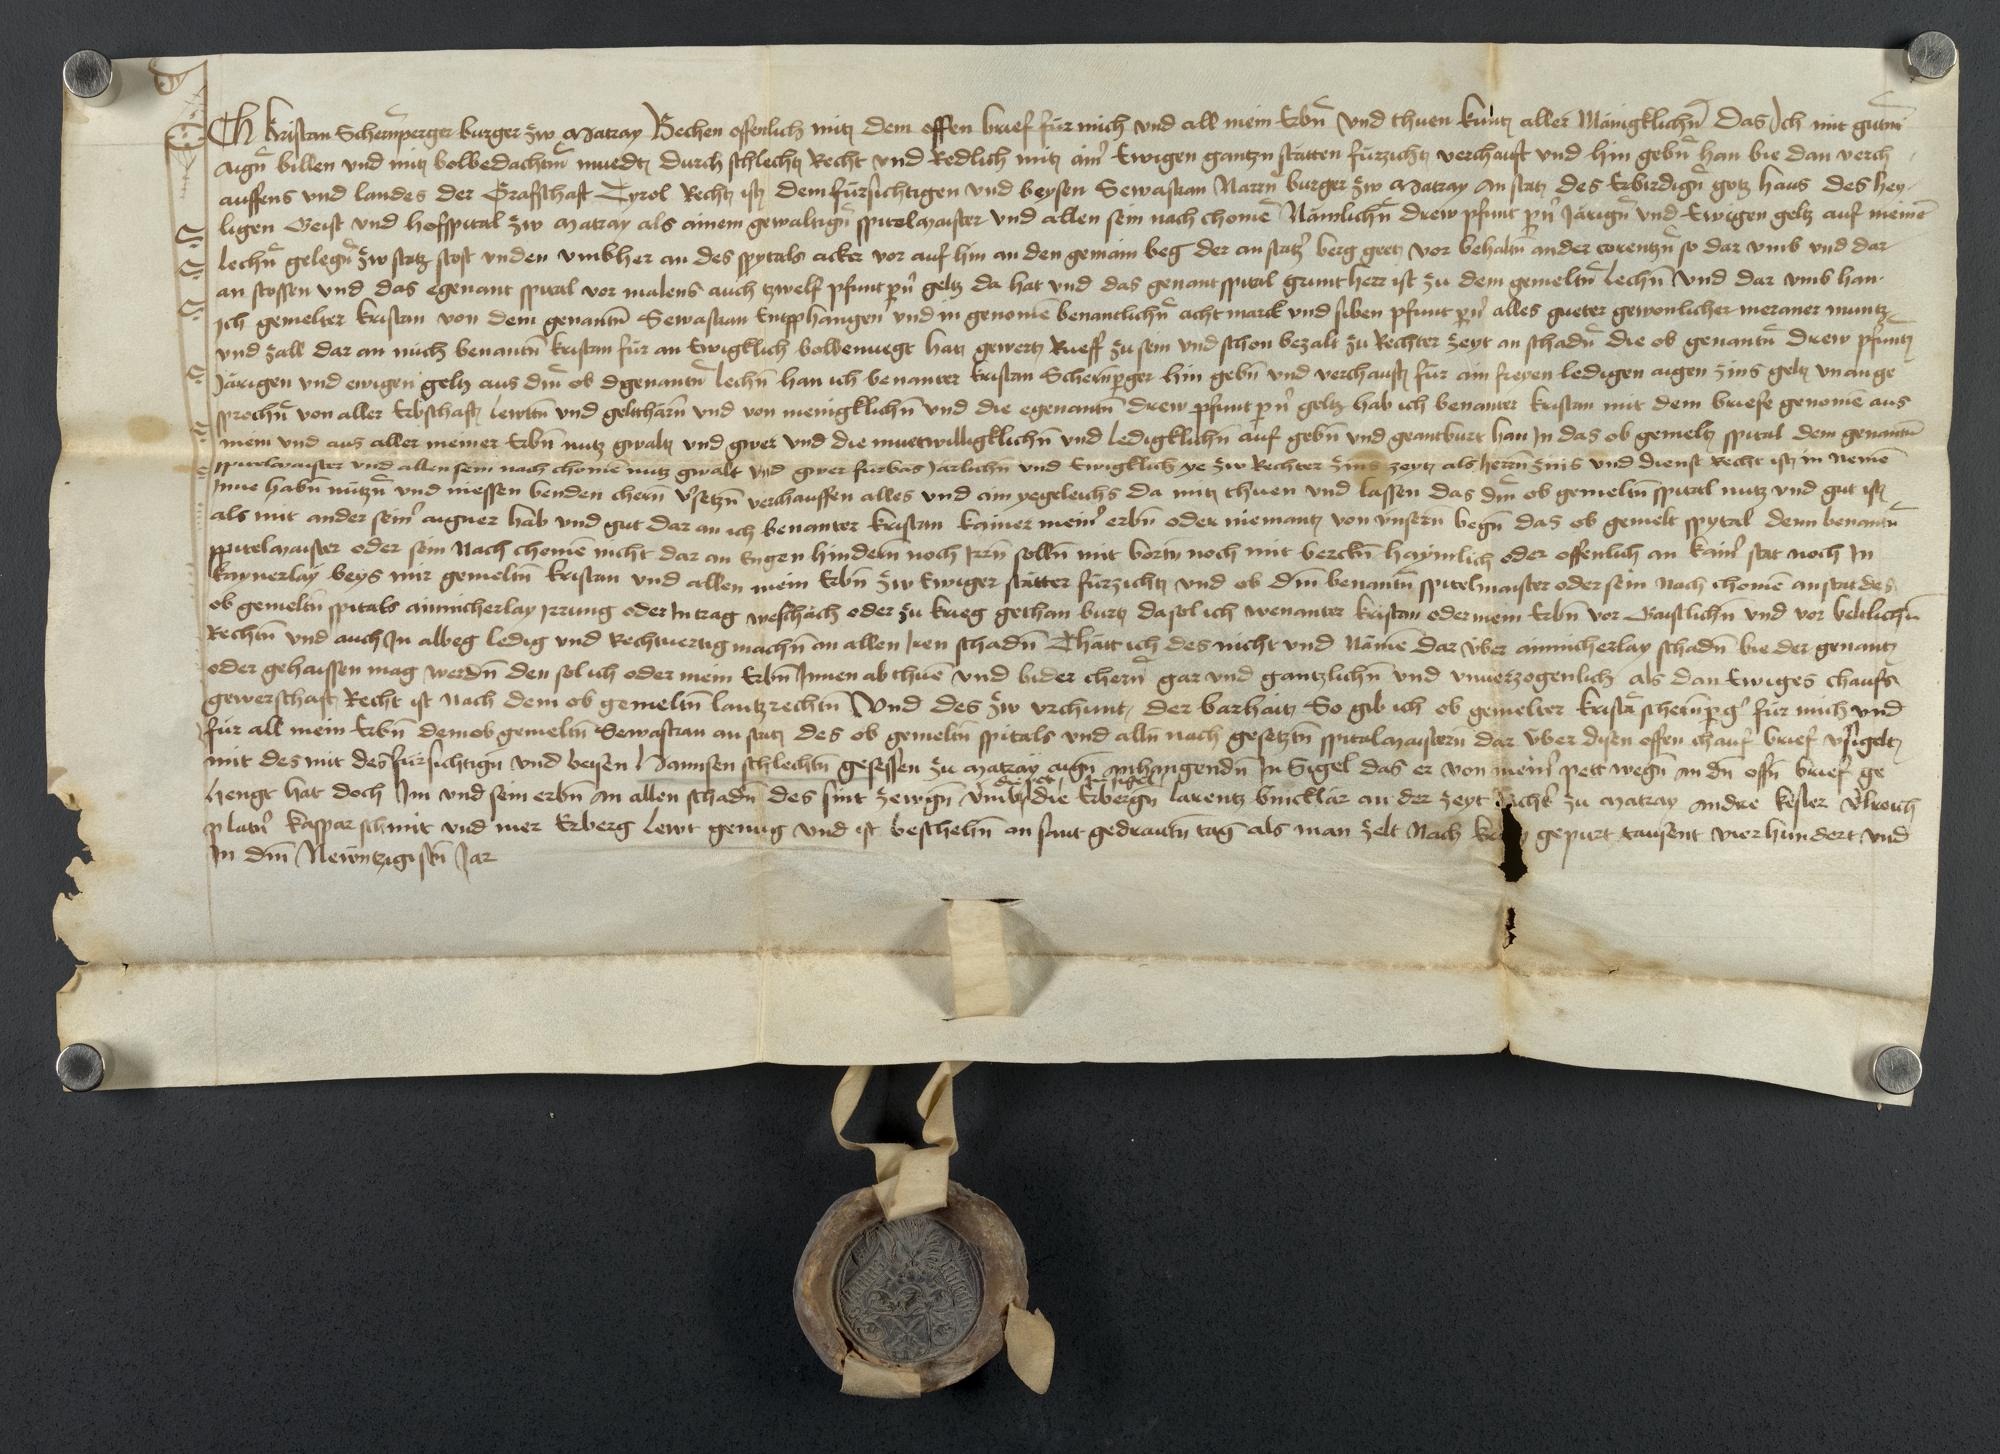 Ich kristan Schernperger burger zw Matray Bechen offenlich mitz dem offen brief für mich vnd all mein Erbn vnd thuen kuntz aller Mänigklichn Das Ich mit gutm
aign billen vnd mitz bolbedachtm muedtz durch schlechtz Recht vnd Redlich mitz aim Ewigen gantzn stätten fürzichtz verchauft vnd hin gebn han bie dan verch
auffens vnd landes der Grafschaft Tyrol Rechtz istz dem fürsichtigen vnd beysen Sewastian Narrn burger zw Matray an statz des Erbirdign gotz haus des hey
ligen Geist vnd hofspital zw Matray als ainem gewaltign spitelmaister vnd allen sein nach chomen Nämlichn drew pfunt pn Järign vnd Ewigen geltz auf meinem
lechn gelegn zw statz stost vnden vmbher an des spytals acker vor auf hin an den gemain beg der an statz berg geetz vor behaltn ander corentzn so dar vmb vnd dar
an stossen vnd das egenant spital vor malens auch tzwelf pfunt pn geltz da hat vnd das genant spital grunt herr ist zu dem gemeltn lechn vnd dar vmb han
ich gemelter kristan von dem genantn Sewastian Entpphangen vnd in genomen benantlichn acht marck vnd siben pfunt pn alles gueter gewonlicher meraner muntz
vnd zall dar an mich benantn kristan für an Ewigklich bolbenuegt hatz gewertz Rueff zu sein vnd schon bezalt zu Rechter zeyt an schadn die ob genantn drew pfuntz
Järigen vnd ewigen geltz aus dm ob dgenantn lechn han ich benanter kristan Schernperger hin gebn vnd verchauftz für ain freyen ledigen aigen zins geltz vnange
sprochn von aller Erbschaftz lewttn vnd geltthärn vnd von menigklichn vnd die egenantn drew pfunt pn geltz hab ich benanter kristan mit dem briefe genomen aus
mein vnd aus aller meiner Erbn nutz gwaltz vnd gwer vnd die muetwilligklichn vnd ledigklichn auf gebn vnd geantburt han In das ob gemeltz spital dem genantn
spitelmaister vnd allen sein nach chomen nutz gwalt vnd gwer fürbas Järlichn vnd Ewigklich ye zw Rechter zins zeytz als herrn zins vnd dienst Recht istz in nemen
Inne habn nützn vnd niessen benden chern vsetzn verchauffen alles vnd ain yegeleichs da mitz thuen vnd lassen das dm ob gemeltn spital nutz vnd gut istz
als mit ander seiner aigner hab vnd gut dar an ich benanter kristan kainer meiner erbn oder niemantz von vnsern begn das ob gemelt spytal denn benantn
spitelmaister oder sein Nach chomen nicht dar an Engen hindern noch Irrn solln mit bortn noch mit berckn haymlich oder offenlich an kainer stat noch In
kaynerlay beys mir gemeltn kristan vnd allen mein Erbn zw Ewiger stätter fürzichtz vnd ob dm benantn spitelmaister oder sein Nach chomen an stat des
ob gemeltn spitals ainnicherlay Irrung oder In trag beschäch oder zu krieg gethan burtz da sol ich wenanter kristan oder mein Erbn vor Gaistlichn vnd vor beltlichn
Rechtn vnd auch In albeg ledig vnd Rechtuertig machn an allen Iren schadn Thätt ich des nicht vnd Näme dar vber ainnicherlay schadn bie der genantz
oder gehaissen mag werdn den sol ich oder mein Erbn Innen ab thuen vnd bider chern gar vnd gantzlichn vnd vnuerzogenlich als dan Ewiges chaufs
gewerschaftz Recht ist Nach dem ob gemeltn lantz rechtn Vnd des zw vrchuntz der barhaitz So gib ich ob gemelter kristan schernperger für mich vnd
für all mein Erbn dem ob gemeltn Sewastian an statz des ob gemeltn spitals vnd alln nach gesetztn spitalmaistern dar vber disen offen chauf brief vsigeltz
mit des mit des fürsichtign vnd beisen Hannsen schlechtn gesessen zu Matray aign anhangendn In Sigel das er von meiner pett wegn an dn offn brief ge
hengt hat doch Im vnd sein erbn an allen schadn des sint zewgn vmb die Erbergn larentz binckler an der zeyt Richter zu Matray Andre kester vlreich
platn kaspar schmit vnd mer Erberg lewt genug vnd ist beschehn an sant gedrautn tag als man zelt Nach gepurt tausent vier hundert vnd
In dm Newntzigistn Jar